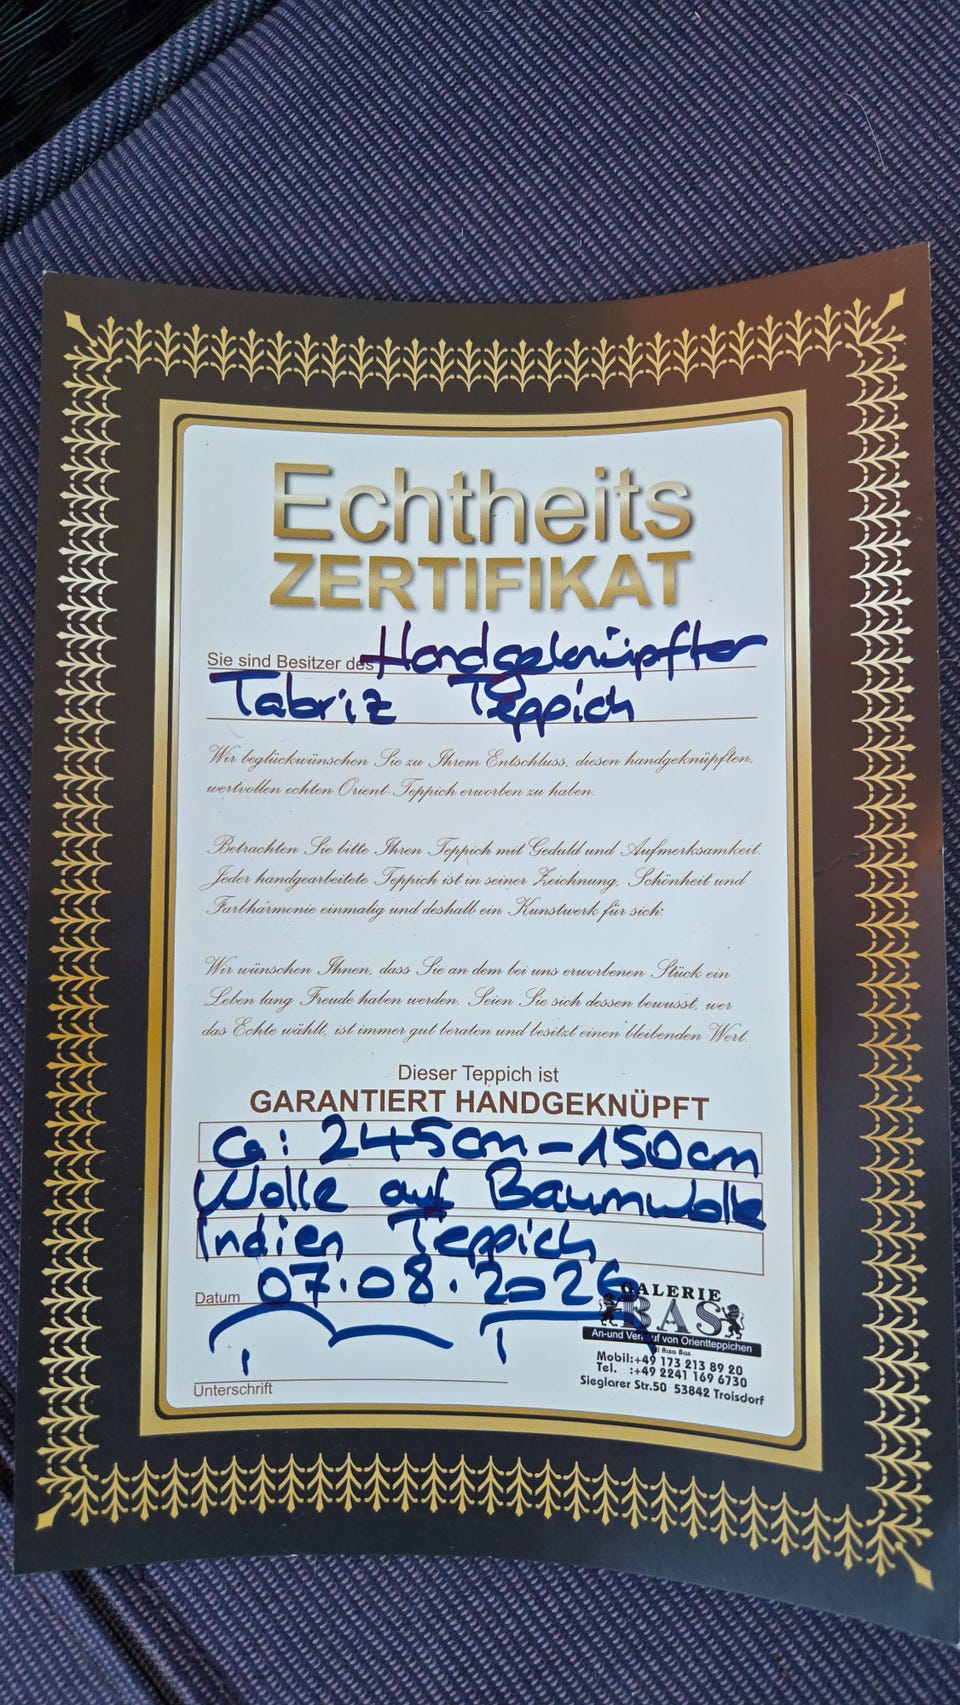 Echtheits
ZERTIFIKAT
Sie sind Besitzer des Handgeknüpfter
Tabriz Teppich
Wir beglückwünschen Sie zu Ihrem Entschluss, diesen handgeknüpften,
wertvollen echten Orient-Teppich erworben zu haben.
Betrachten Sie bitte Ihren Teppich mit Geduld und Aufmerksamkeit.
Jeder handgearbeitete Teppich ist in seiner Zeichnung, Schönheit und
Farbharmonie einmalig und deshalb ein Kunstwerk für sich.
Wir wünschen Ihnen, dass Sie an dem bei uns erworbenen Stück ein
Leben lang Freude haben werden. Seien Sie sich dessen bewusst, wer
das Echte wählt, ist immer gut beraten und besitzt einen bleibenden Wert.
Dieser Teppich ist
GARANTIERT HANDGEKNÜPFT
Ca: 245cm-150cm
Wolle auf Baumwolle
Indien Teppich
Datum 07.08.2026
GALERIE
BAS
An-und Verkauf von Orientteppichen
Riza Bas
Mobil:+49 173 213 89 20
Tel. :+49 2241 169 6730
Sieglarer Str.50 53842 Troisdorf
Unterschrift